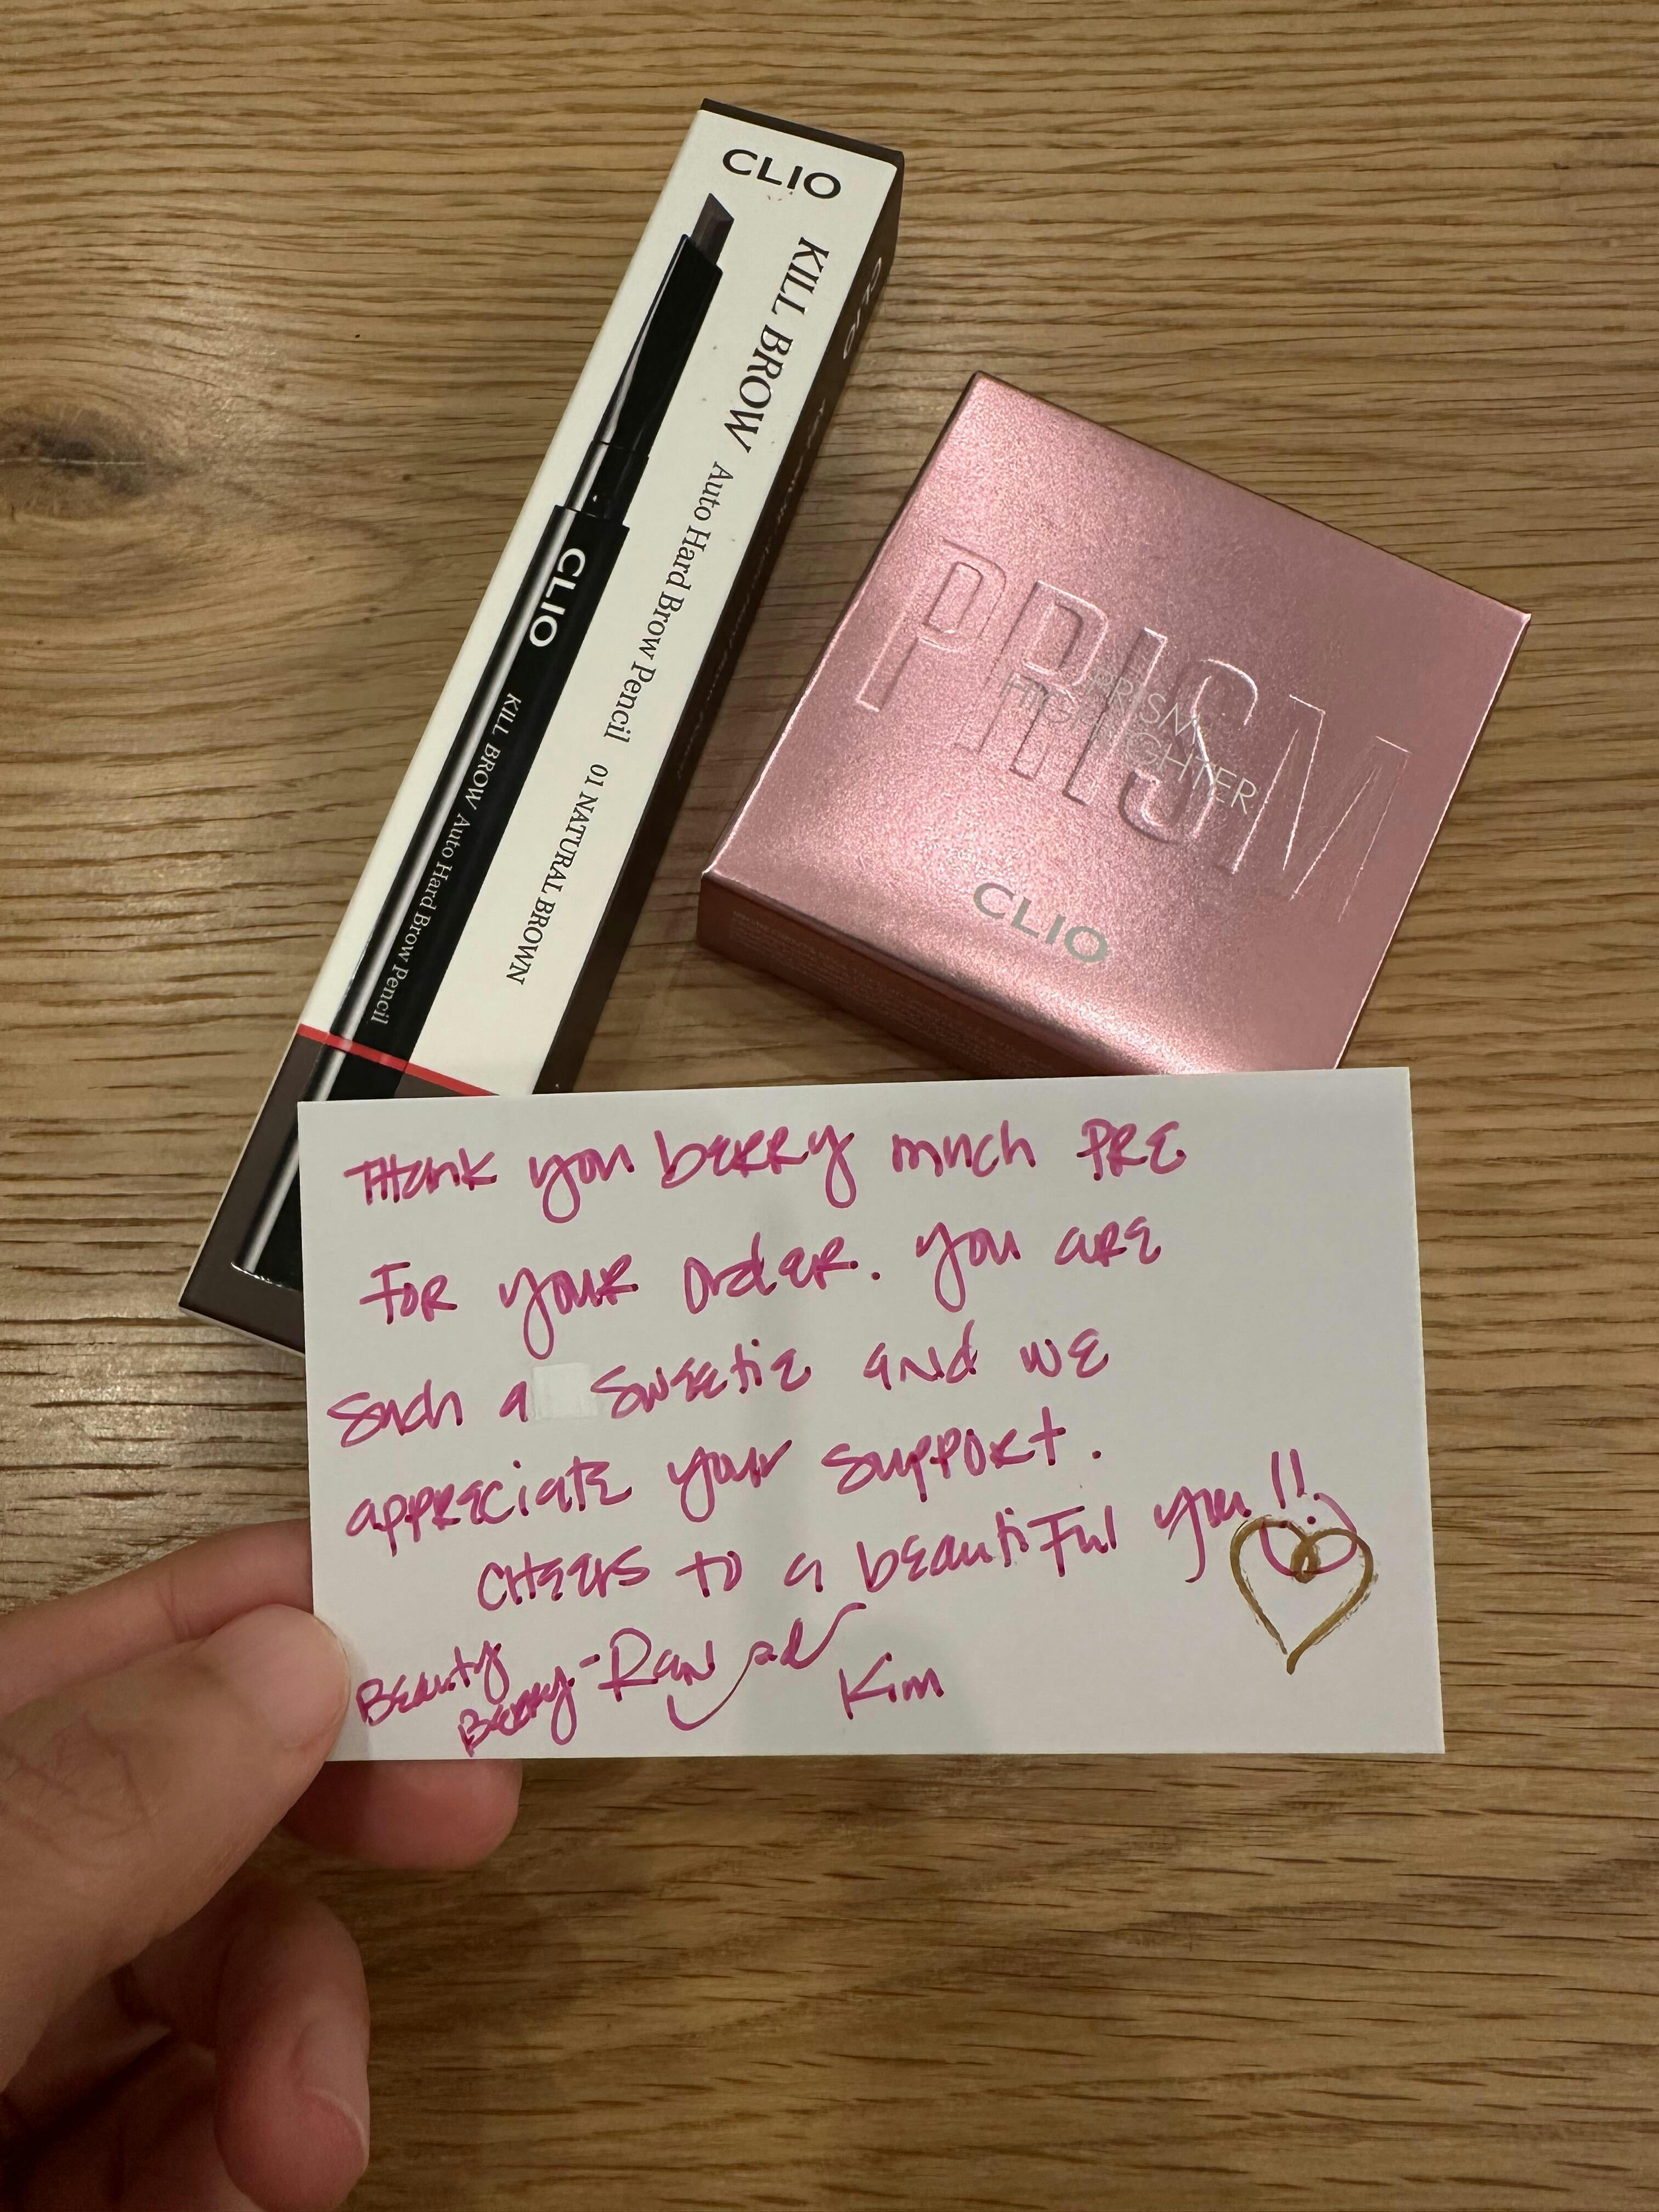 CLIO
KILL BROW Auto Hard Brow Pencil 01 NATURAL BROWN
CLIO KILL BROW Auto Hard Brow Pencil
CLIO
PRISM
PRISM
HIGHLIGHTER
CLIO
Thank you berry much PRE
For your order. You are
Such a Sweetie and we
appreciate your support.
Cheers to a beautiful you!!
Beauty
Berry - Ran and
Kim